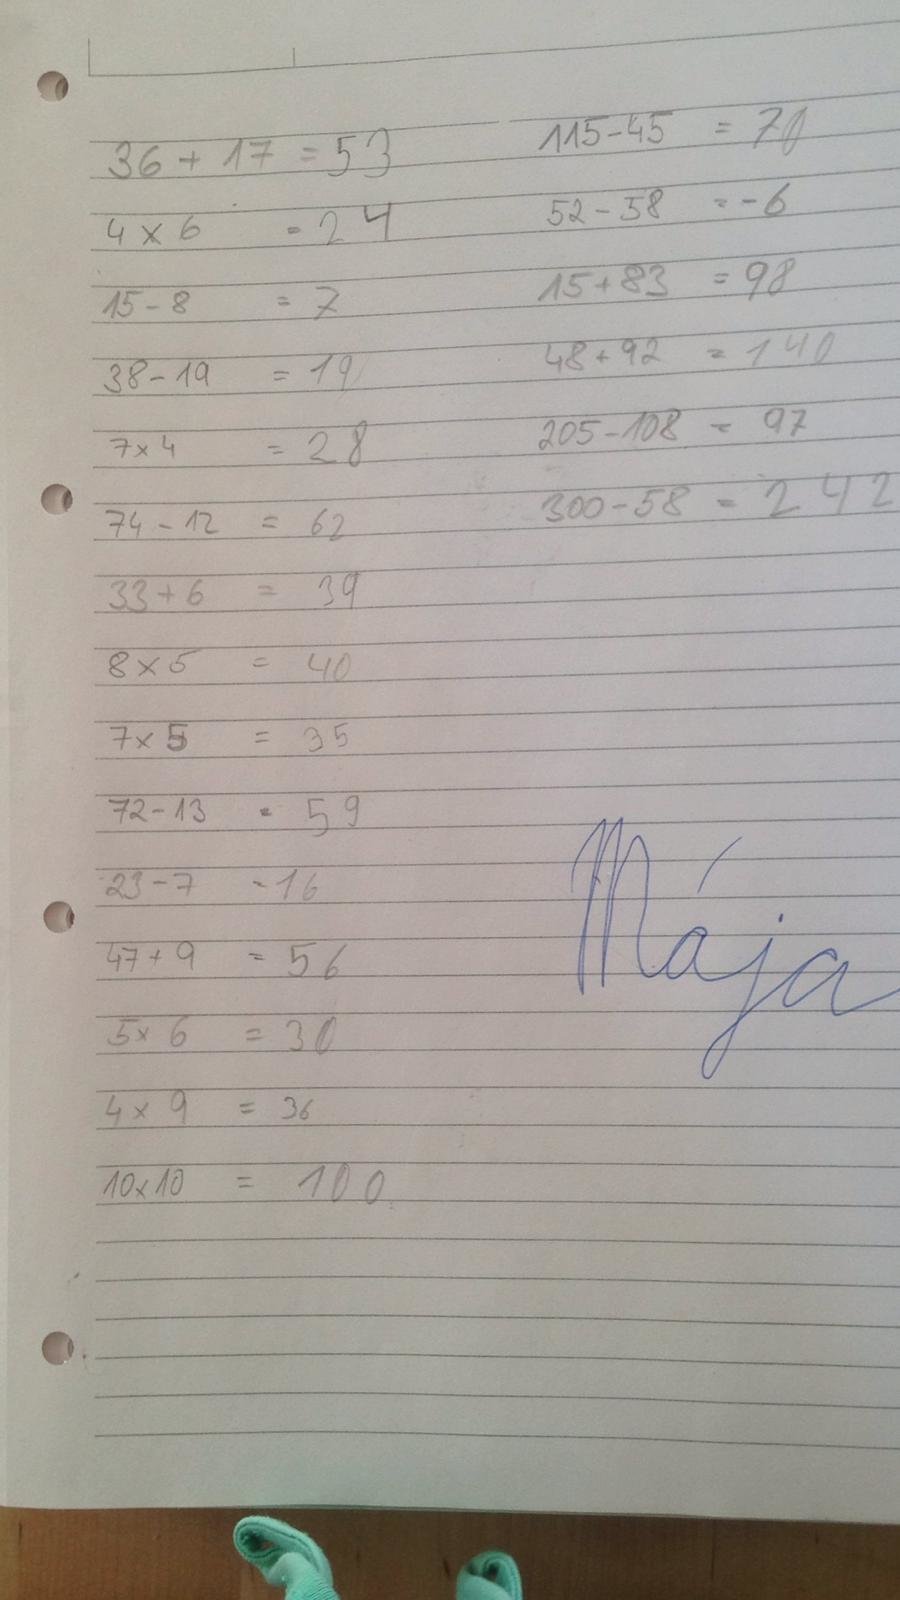 36 + 17 = 53
4 x 6 = 24
15 - 8 = 7
38 - 19 = 19
7 x 4 = 28
74 - 12 = 62
33 + 6 = 39
8 x 5 = 40
7 x 5 = 35
72 - 13 = 59
23 - 7 = 16
47 + 9 = 56
5 x 6 = 30
4 x 9 = 36
10 x 10 = 100
115 - 45 = 70
52 - 58 = -6
15 + 83 = 98
48 + 92 = 140
205 - 108 = 97
300 - 58 = 242
Mája